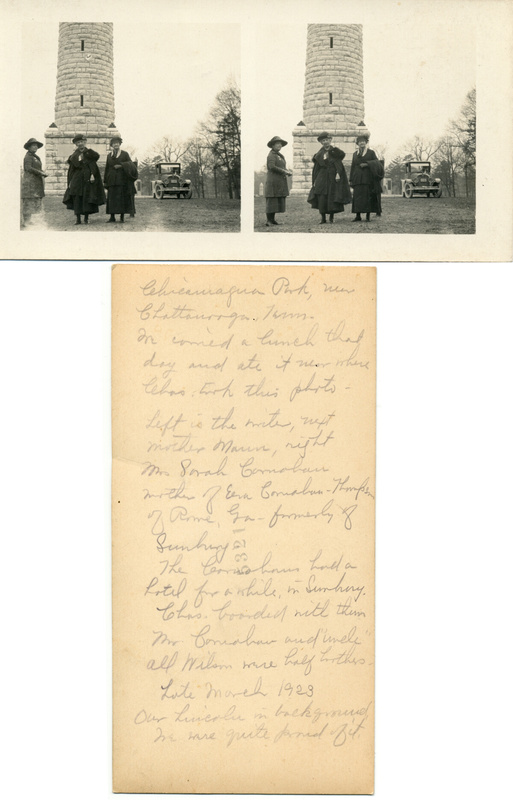 Chicamagua Park, near
Chattanooga, Tenn.
We carried a lunch that
day and ate it near where
Chas. took this photo -
Left is the writer, next
mother Mann, right
Mrs Sarah Carnahan
mother of Carnahan - Thompson
of Rome, Ga - formerly of
Sunbury
The Carnahans had a
hotel for a while, in Sunbury.
Chas. boarded with them
Mr Carnahan and "uncle"
all Wilson were half brothers.
Late March 1923
Our Lincoln in background
We were quite proud of it.